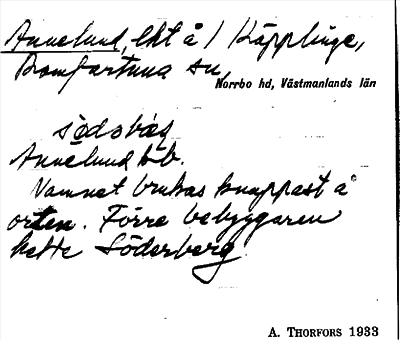 Annelund, lht å 1 Käpplinge,
Romfartuna sn,
Norrbo hd, Västmanlands län
södəbärj
Annelund bb.
Namnet brukas knappast å
orten. Förre bebyggaren
hette Söderberg.
A. THORFORS 1933